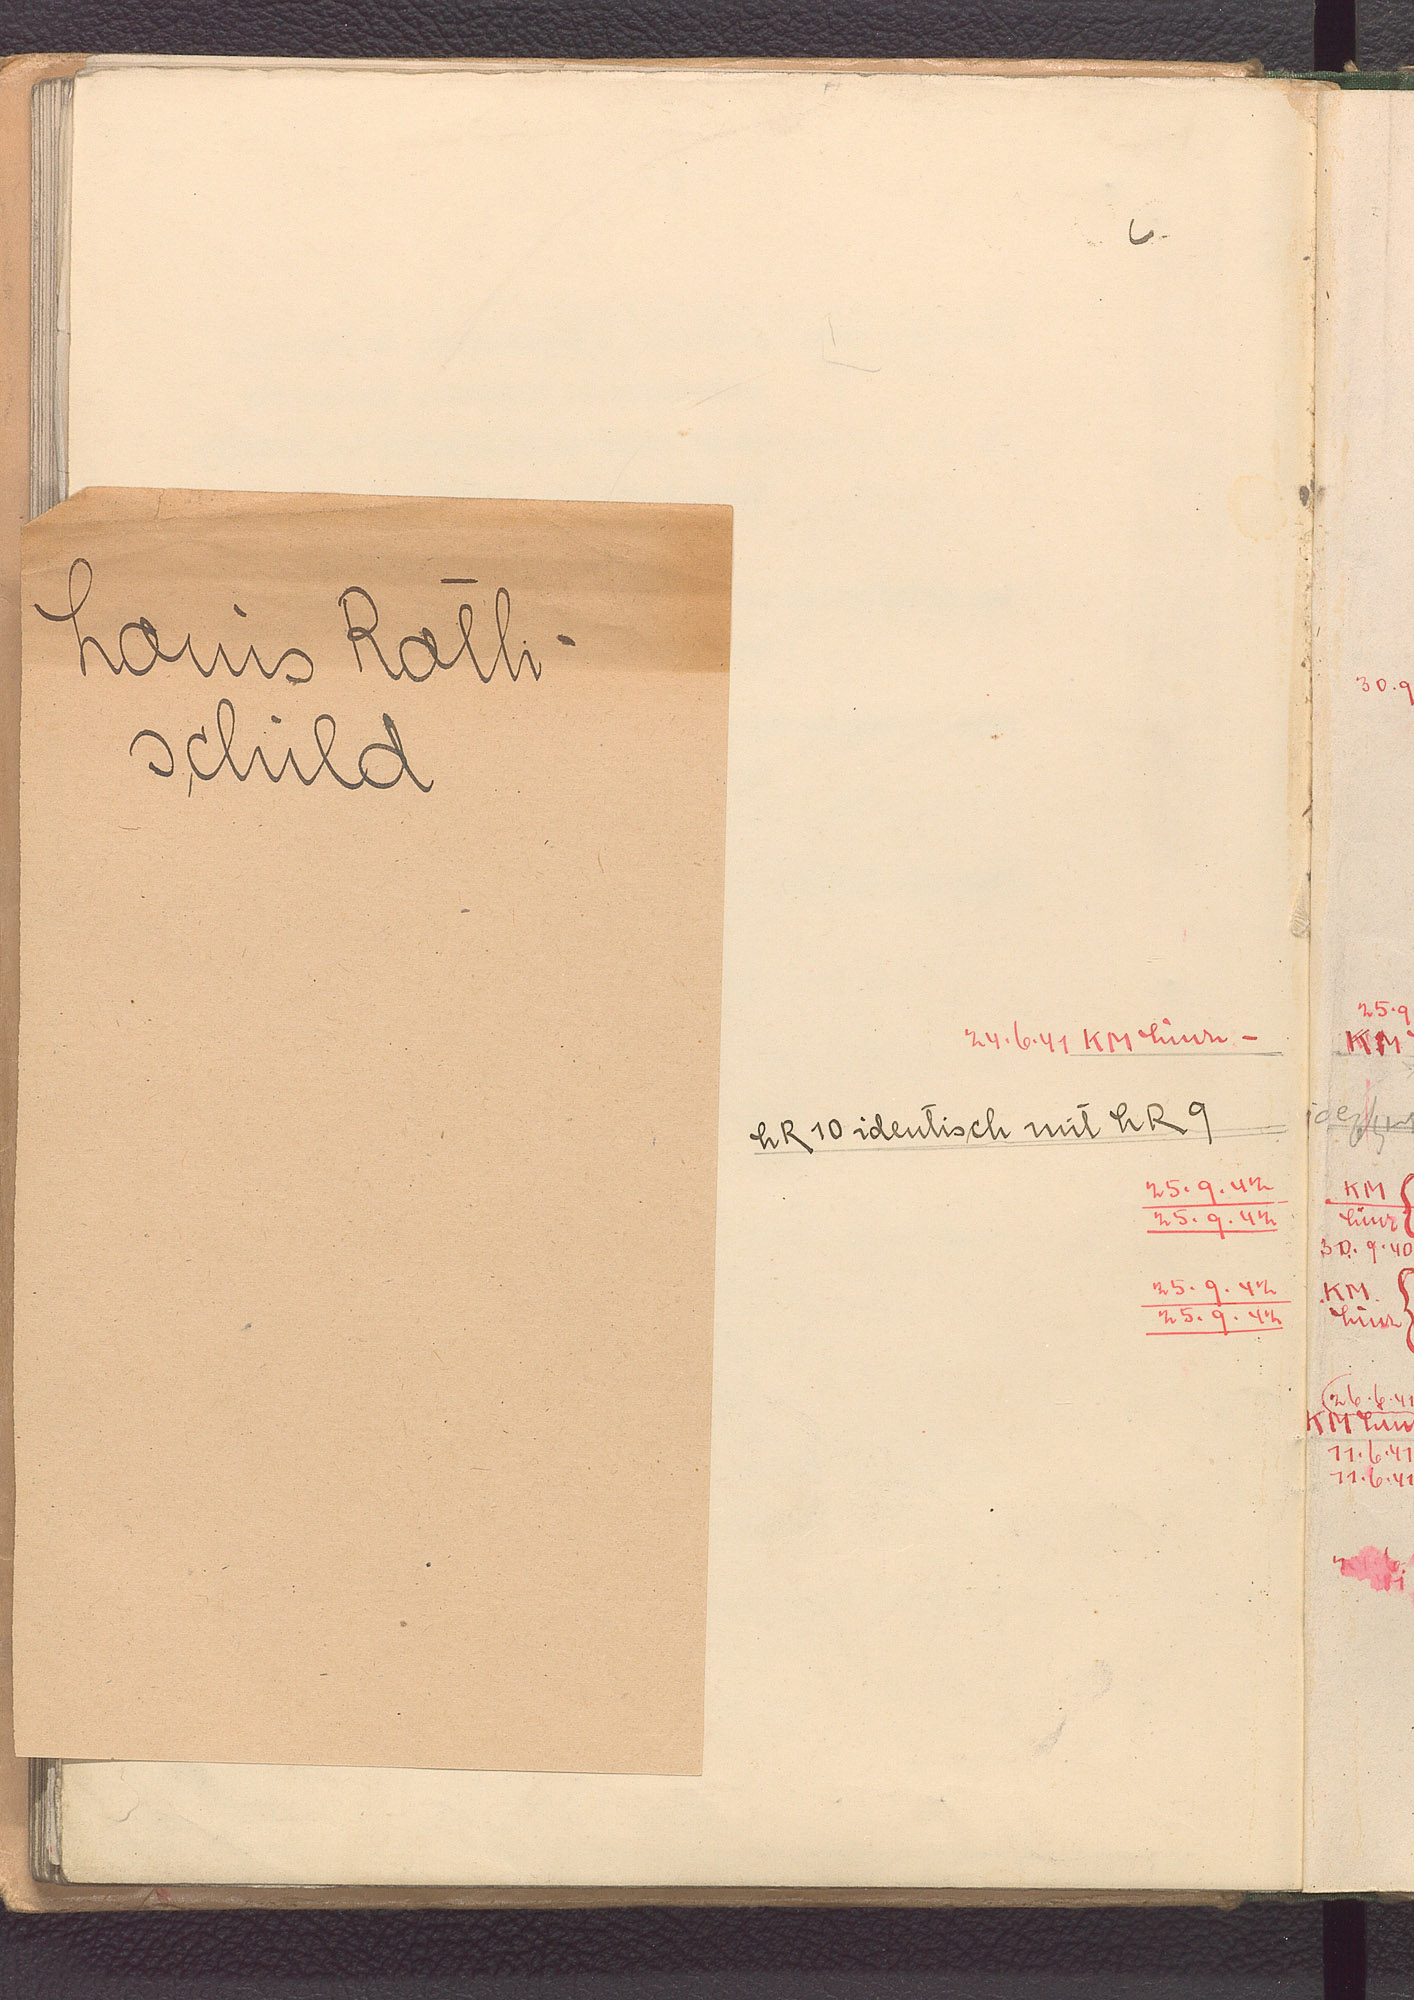 Louis Roth-
schild
24.6.41 KM Linz -
LR 10 identisch mit LR 9
25.9.42
25.9.42
25.9.42
25.9.42
30.9
25.9
KM
KM
Linz
30.9.40
KM
Linz
26.6.41
KM Linz
11.6.41
11.6.41